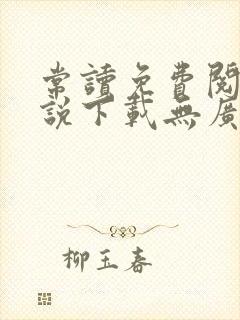 常讀免費閱
說下載無廣
柳玉春